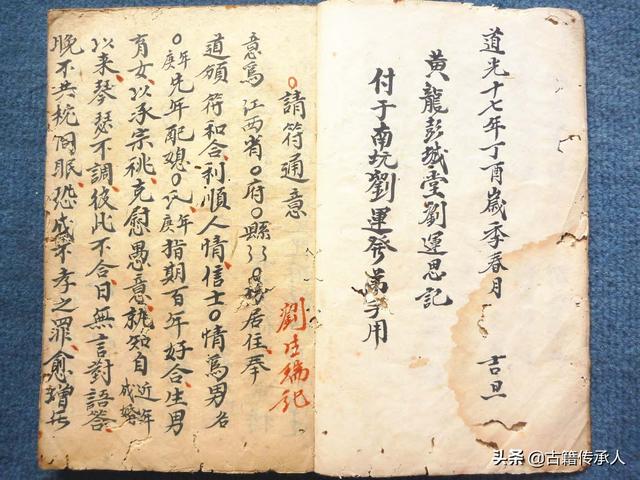 道光十七年丁酉歲季春月 吉旦
黄龍彭城堂劉運思記
付于南坑劉運發弟子用
○請符通意
意爲江西省○府○縣○○居住奉
道頒符和合利順人情信士○情爲男名
○年庚先年配媳○氏年庚指期百年好合生男
育女以承宗祧克慰愚意孰知自近年成婚
以来琴瑟不調彼此不合日無言對語答
晚不共枕同眠恐成不孝之罪愈增
劉記
头条@古籍传承人